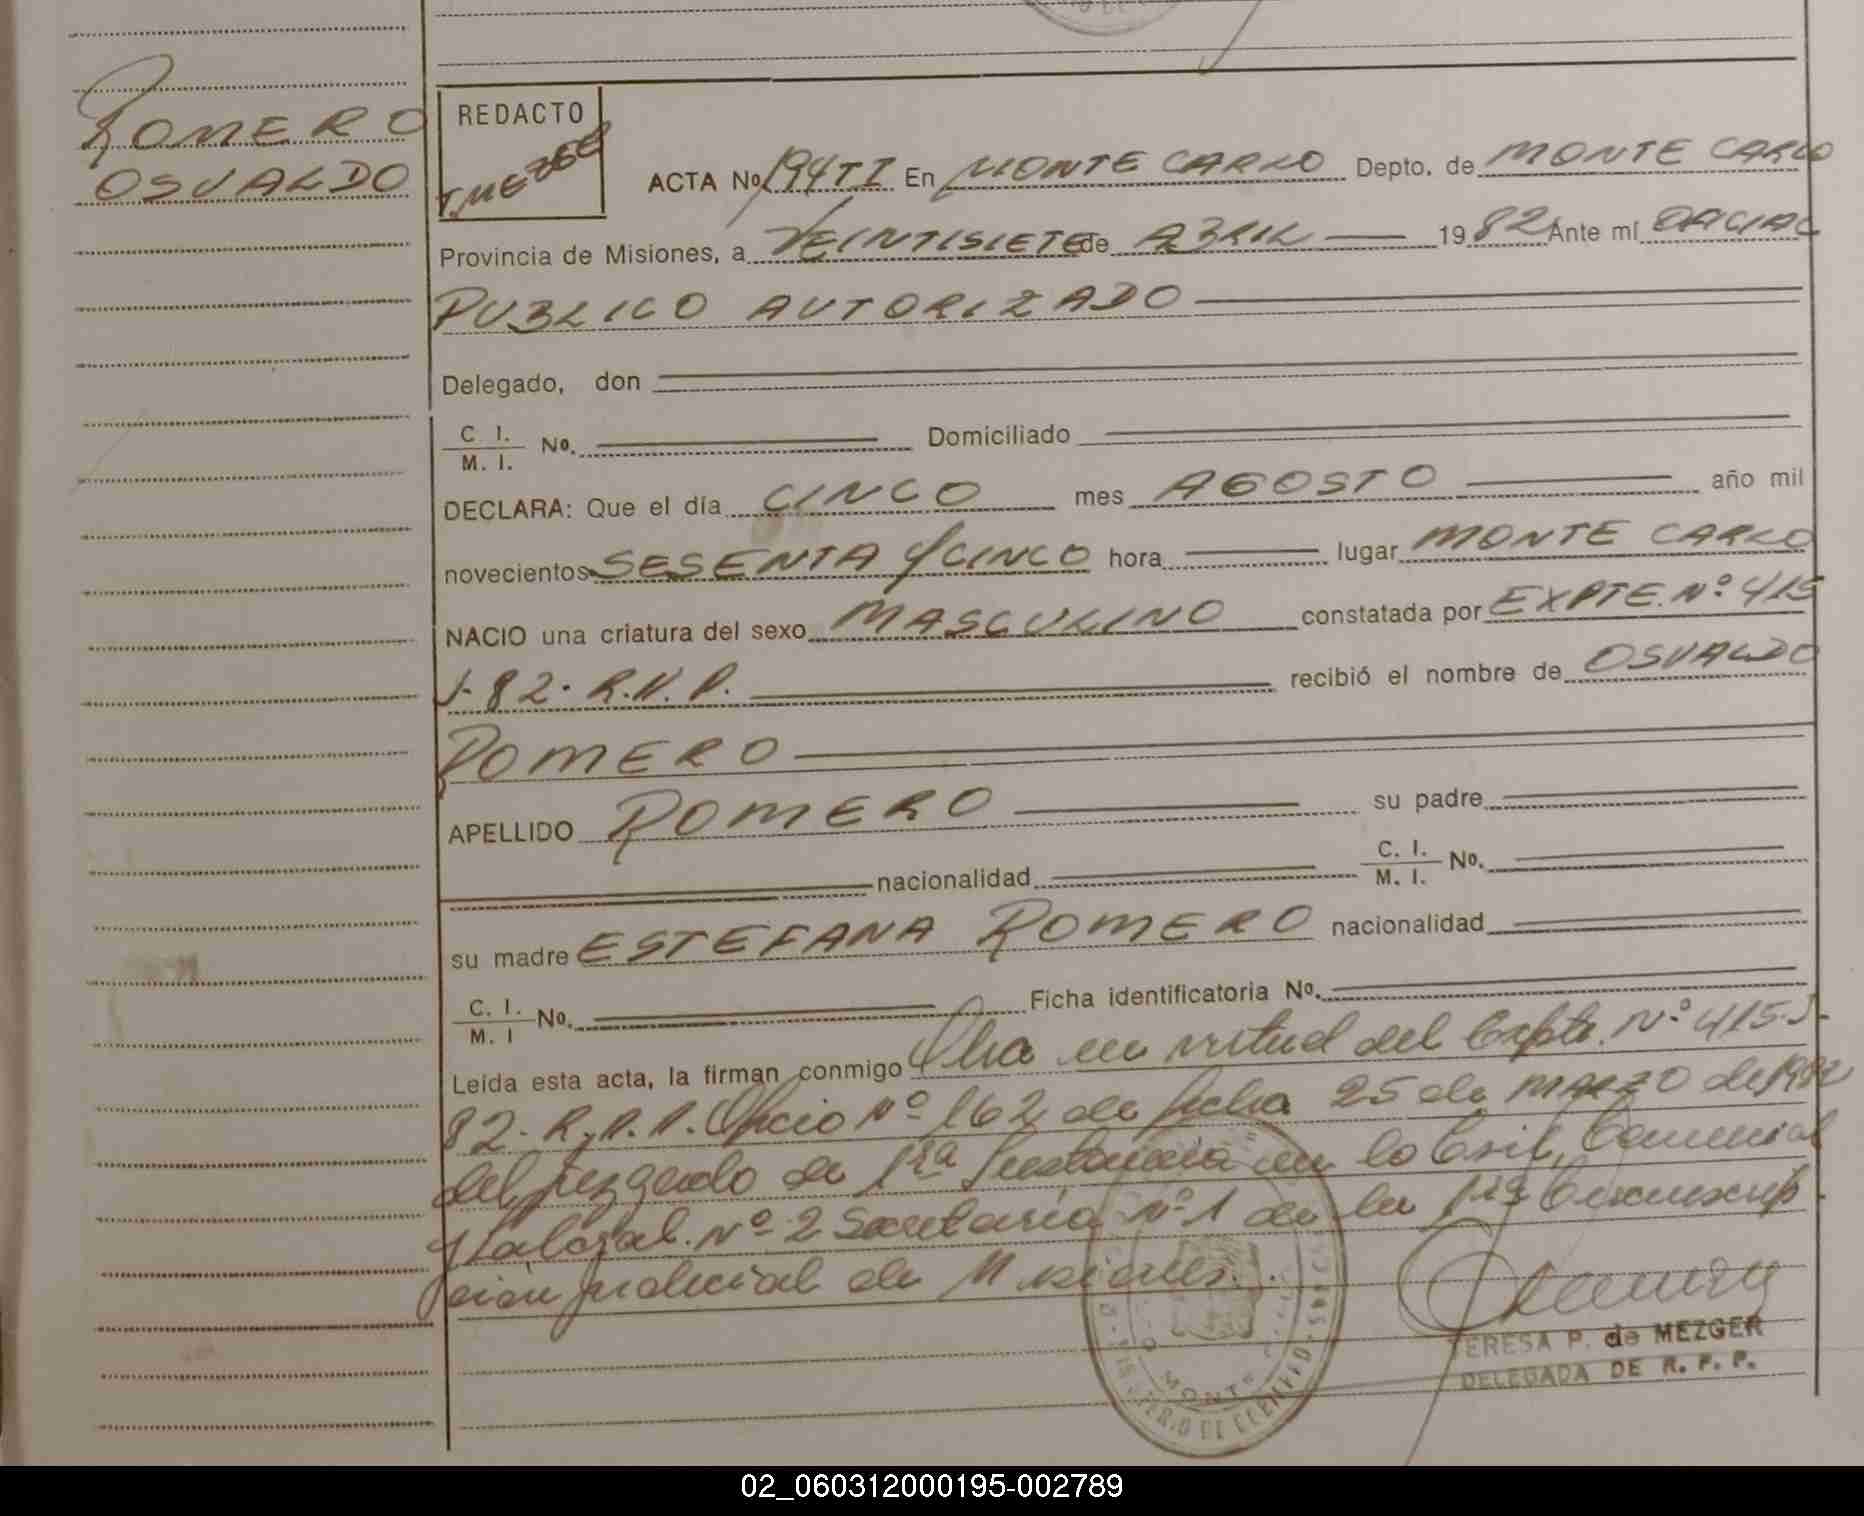 ROMERO
OSVALDO
REDACTO
ACTA No 194TI En MONTE CARLO Depto. de MONTE CARLO
Provincia de Misiones, a VEINTISIETE de ABRIL 1982 Ante mí OFICIAL
PUBLICO AUTORIZADO
Delegado, don
C. I. / M. I. No. Domiciliado
DECLARA: Que el día CINCO mes AGOSTO año mil
novecientos SESENTA Y CINCO hora lugar MONTE CARLO
NACIO una criatura del sexo MASCULINO constatada por EXPTE. Nº 415
J-82. R.N.P. recibió el nombre de OSVALDO
ROMERO
APELLIDO ROMERO su padre
nacionalidad C. I. / M. I. No.
su madre ESTEFANA ROMERO nacionalidad
C. I. / M. I No. Ficha identificatoria No.
Leída esta acta, la firman conmigo en virtud del Expte. Nº 415-J-
82- Oficio Nº 162 de fecha 25 de MARZO de 1982
del juzgado de 1ra Instancia en lo Civil, Comercial
y Laboral. Nº 2 Secretaria Nº 1 de la 1ra Circunscrip
ción judicial de Misiones.
TERESA P. de MEZGER
DELEGADA DE R. P. P.
02_060312000195-002789